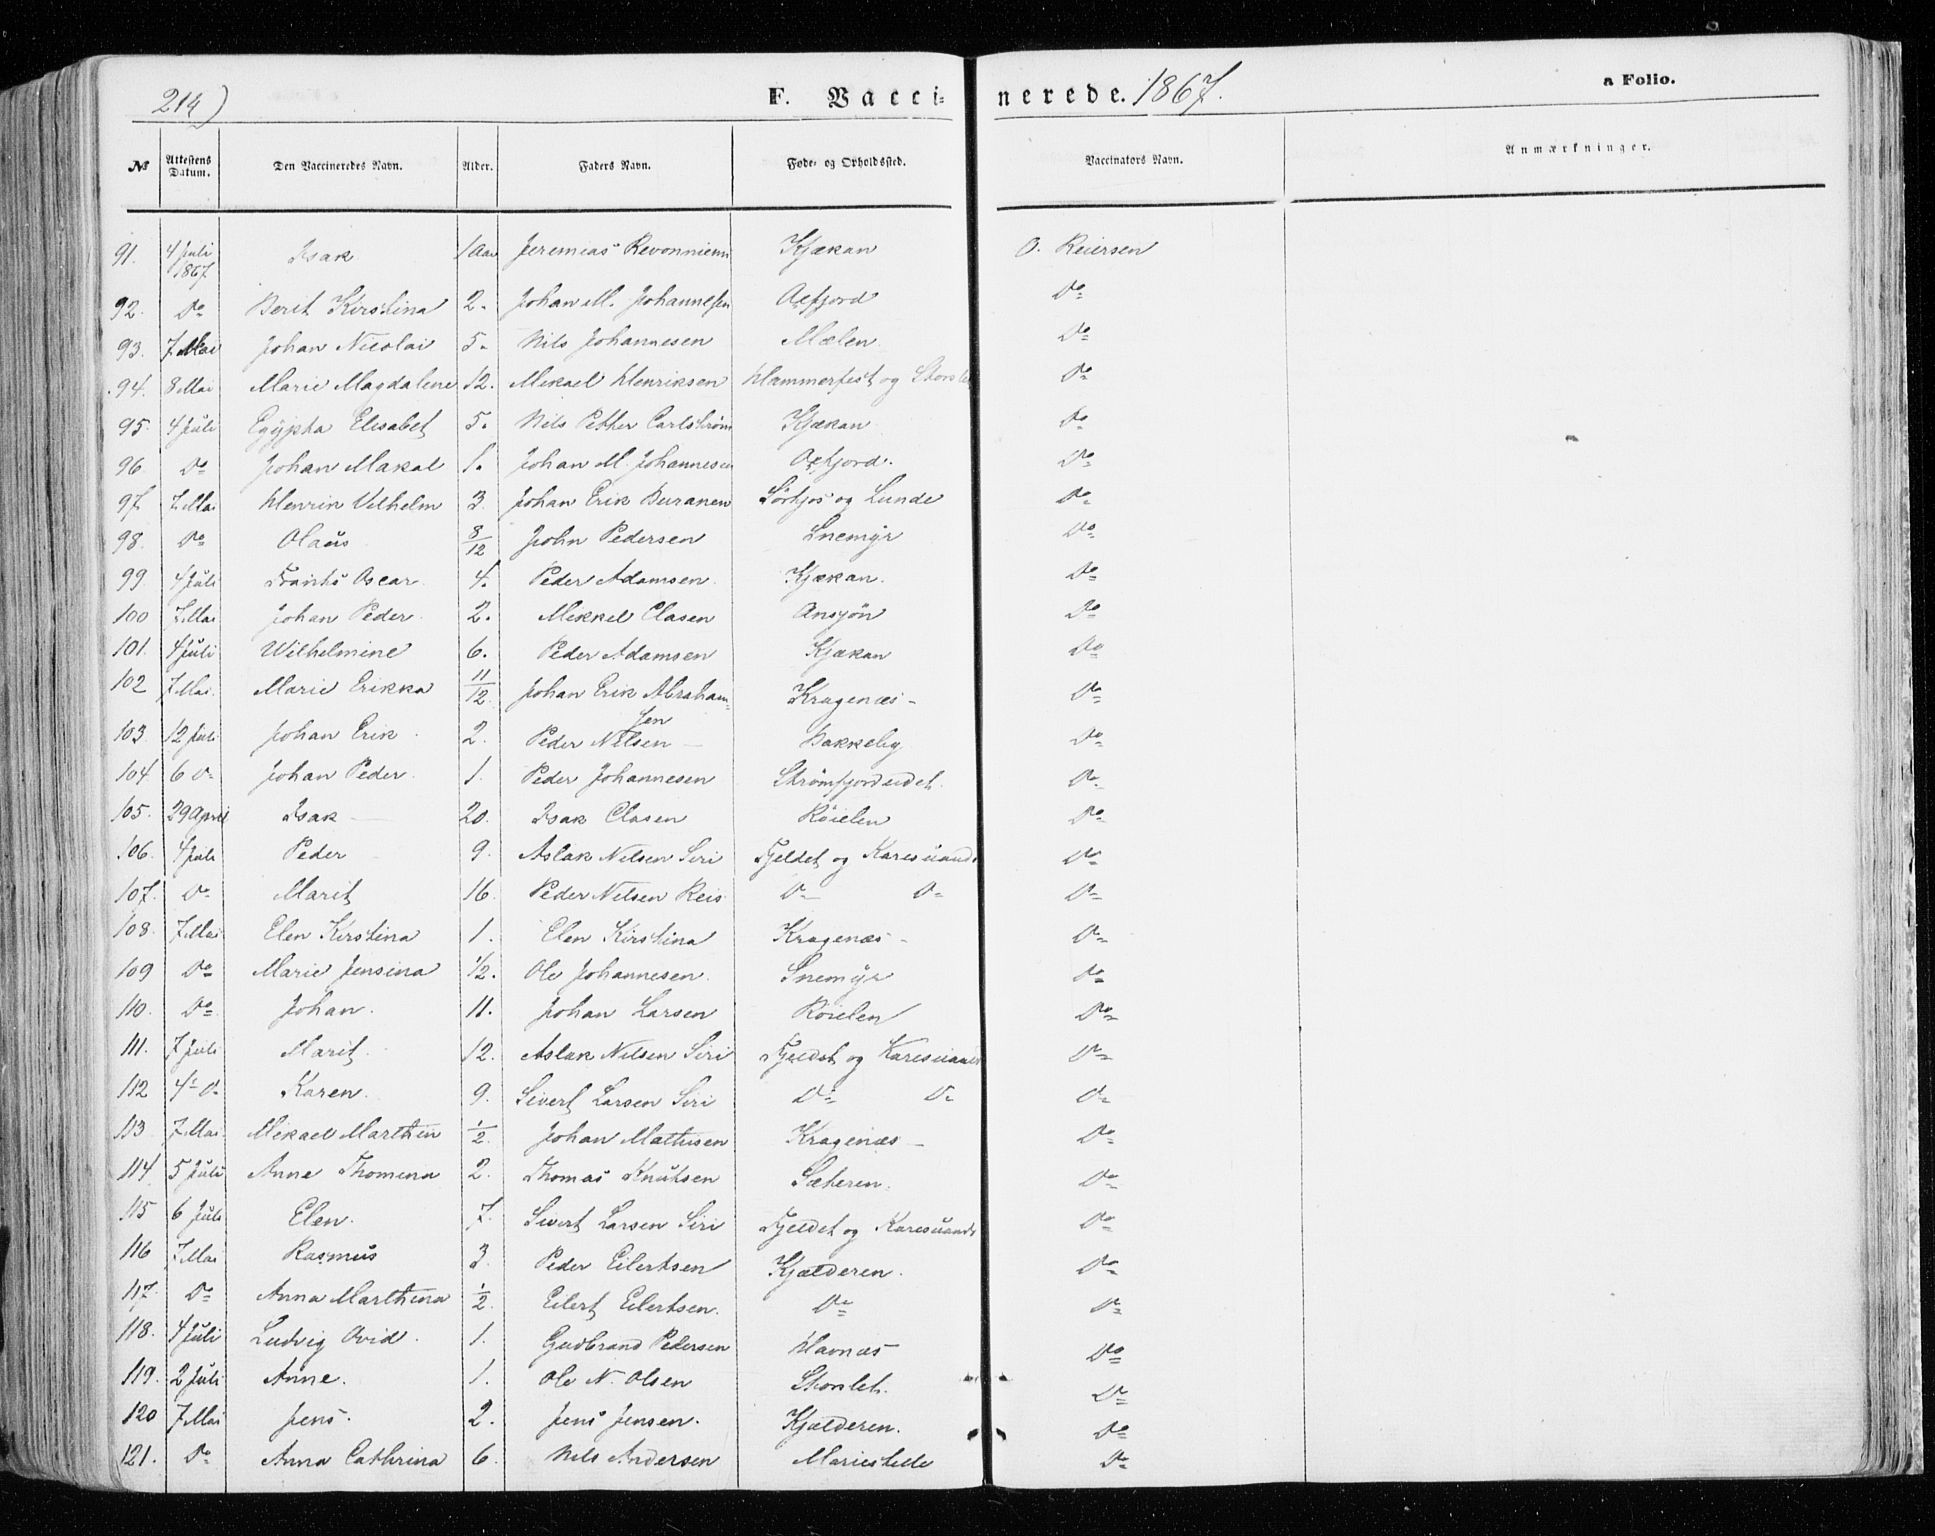 214)
F. Vaccinerede. 1867.
a Folio.
№ Attestens Datum. Den Vaccineredes Navn. Alder. Faders Navn. Føde- og Opholdssted. Vaccinators Navn. Anmærkninger.
91. 4 Juli 1867 Isak 1 Aar Jeremias Revonniemi Kjækan O. Reiersen
92. Do Berit Kirstina 2. Johan M. Johannesen Oxfjord Do
93. 7 Mai Johan Nicolai 5. Nils Johannesen Mælen Do
94. 8 Mai Marie Magdalene 12. Mikael Henriksen Hammerfest og Storslet Do
95. 4 Juli Egypta Elisabet 5. Nils Petter Carlstrøm Kjækan Do
96 Do Johan Makal 1. Johan M. Johannesen Oxfjord. Do
97. 7 Mai Henrik Vilhelm 3. Johan Erik Buranen Sørkjos og Lunde Do
98. Do Olaus 8/12 John Pedersen Snemyr Do
99 4 Juli Frants Oscar. 4. Peder Adamsen. Kjækan. Do
100 7 Mai Johan Peder. 2. Mikkel Clasen Ansjøn Do
101. 4 Juli Wilhelmine 6. Peder Adamsen Kjækan Do
102 7 Mai. Marie Erikka 11/12 Johan Erik Abraham- Kragenæs - Do
sen
103. 12 Juli Johan Erik. 2. Peder Nilsen - Bakkeby Do
104 6 Do Johan Peder. 1. Peder Johannesen Strømfjordeidet. Do
105. 29 April Isak - 20. Isak Clasen Røielen Do
106. 4 Juli Peder 9. Aslak Nilsen Siri Fjeldet og Karesuando Do
107. Do Marit 16. Peder Nilsen Reis Do Do Do
108. 7 Mai Elen Kirstina 1. Elen Kirstina Kragenæs - Do
109 Do Marie Jensina 1/2. Ole Johannesen. Snemyr Do
110. Do Johan. 11. Johan Larsen Røielen Do
111. 7 Juli Marit. 12. Aslak Nilsen Siri Fjeldet og Karesuando Do
112 4 Do Karen. 9. Sivert Larsen Siri Do Do Do
113. 7 Mai. Mikael Marthin 1/2. Johan Mathisen Kragenæs - Do
114 5 Juli Anne Thomina 2. Thomas Knutsen Sæteren. Do
115 6 Juli Elen. 7. Sivert Larsen Siri Fjeldet og Karesuando Do
116 7 Mai Rasmus 3. Peder Eilertsen Kjælderen. Do
117. Do Anna Marthina 1/2. Eilert Eilertsen. Do Do
118. 4 Juli Ludvig Ovid. 1. Gudbrand Pedersen Havnæs Do
119. 2 Juli Anne. 1. Ole N. Olsen Storslet. Do
120 7 Mai Jens. 2. Jens Jensen. Kjælderen. Do
121. Do Anna Cathrina 6. Nils Andersen Do